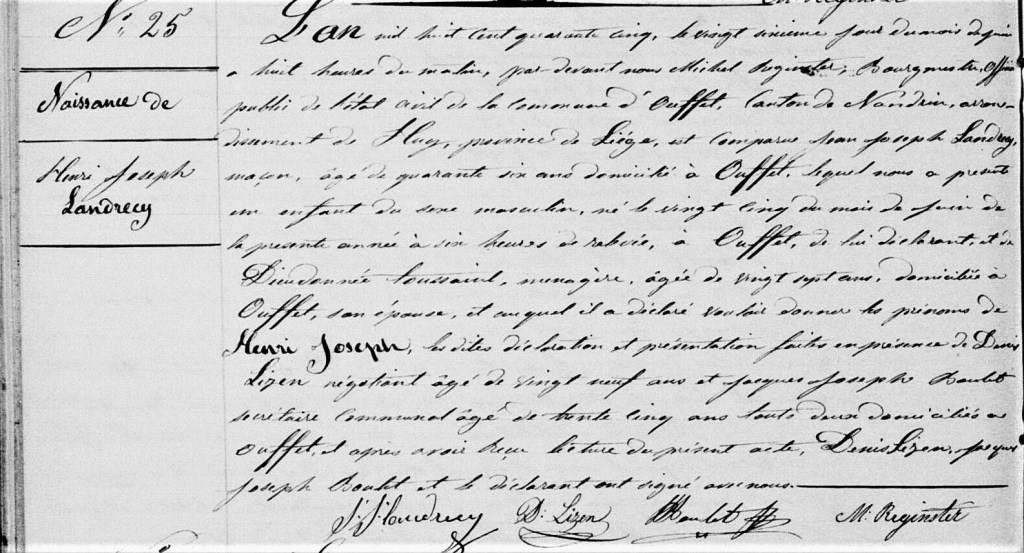 N° 25
Naissance de
Henri Joseph
Landrecy
L'an mil huit cent quarante cinq, le vingt sixieme jour du mois de juin
a huit heures du matin, par-devant nous Michel Reginster, Bourgmestre, Offici
public de l'état civil de la commune d'Ouffet, Canton de Nandrin, arron-
dissement de Huy, province de Liége, est comparu Jean Joseph Landrecy,
maçon, âgé de quarante six ans domicilié à Ouffet, lequel nous a presenté
un enfant du sexe masculin, né le vingt cinq du mois de juin de
la presente année à six heures de relevée, à Ouffet, de lui déclarant, et de
Dieudonnée toussaint, menagère, âgée de vingt sept ans, domiciliée à
Ouffet, son épouse, et auquel il a déclaré vouloir donner les prénoms de
Henri Joseph, les dites déclaration et présentation faites en présence de Denis
Lizen négotiant âgé de vingt neuf ans et Jacques Joseph Boulet
secrétaire communal âgé de trente cinq ans touts deux domiciliés a
Ouffet, et après avoir reçu lecture du présent acte, Denis Lizen, Jacques
Joseph Boulet et le déclarant ont signé avec nous.
J. J. Landrecy D. Lizen Boulet M. Reginster